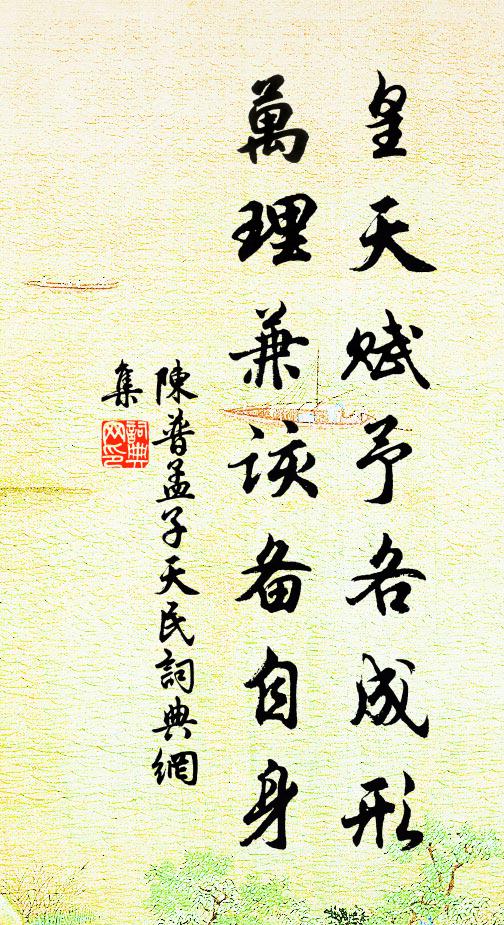 皇天赋予各成形
萬理兼该备自身
陳普孟子天民詞典網
集
詞典网印